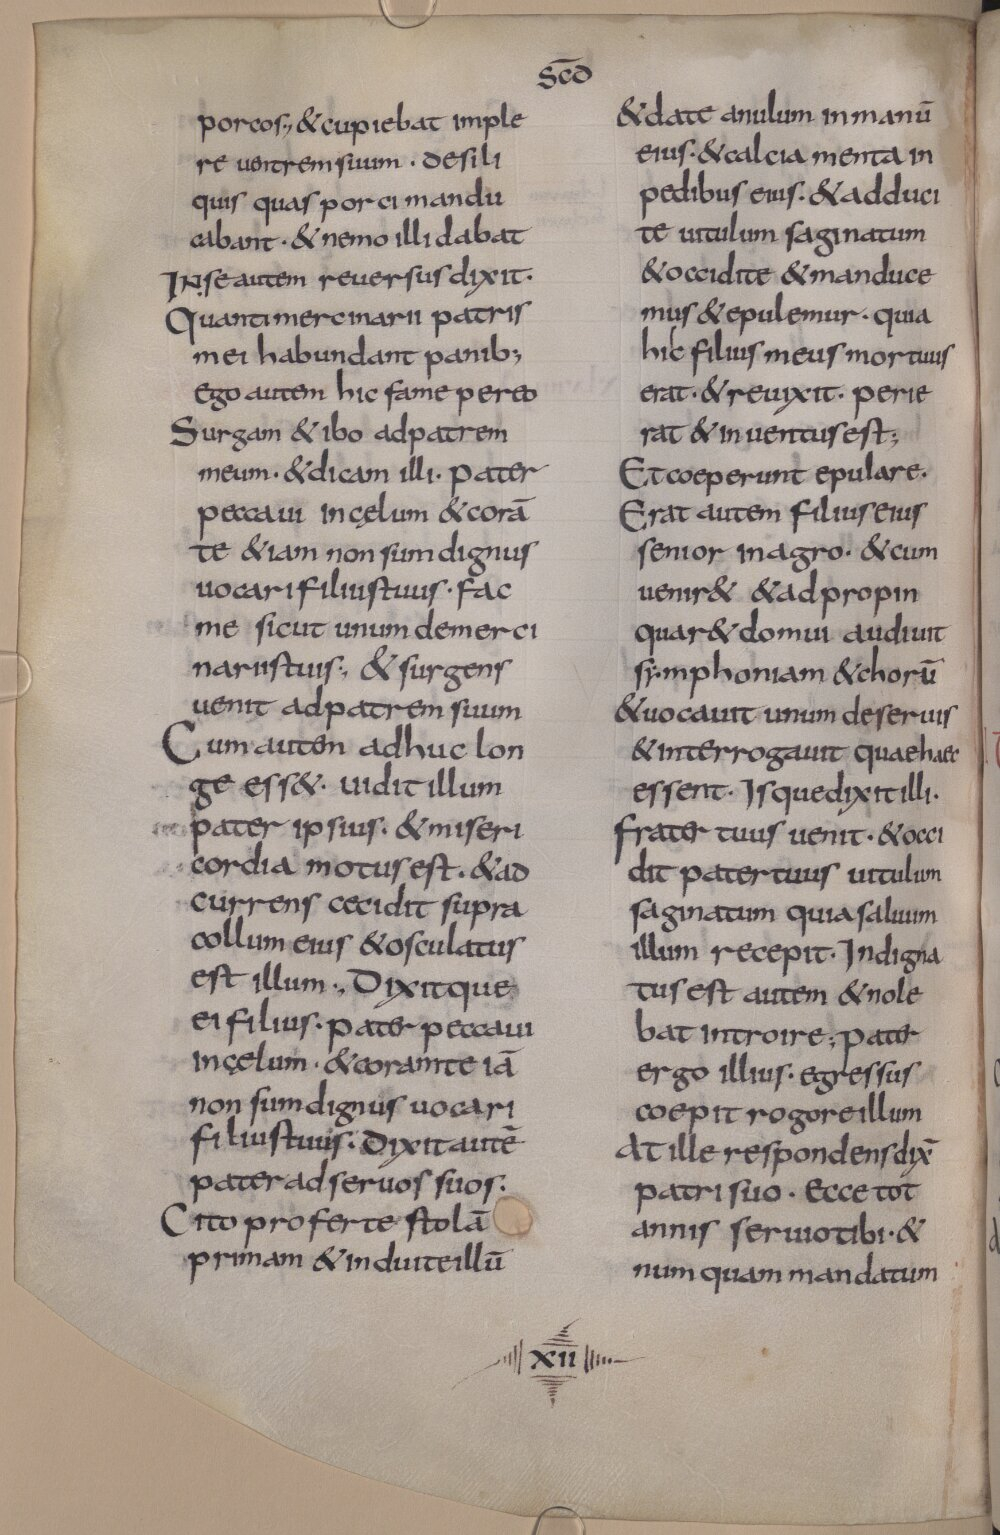 scđ
porcos; & cupiebat imple
re uentrem suum · desili
quis quas porci mandu
cabant · & nemo illi dabat
IN se autem reuersus dixit ·
Quanti mercinarii patris
mei habundant panib;
ego autem hic fame pereo
Surgam & ibo ad patrem
meum · & dicam illi · pater
peccaui in cęlum & corā
te & iam non sum dignus
uocari filius tuus · fac
me sicut unum de merci
nariis tuis; & surgens
uenit ad patrem suum
Cum autem adhuc lon
ge ess& · uidit illum
pater ipsius · & miseri
cordia motus est · & ad
currens cecidit supra
collum eius & osculatus
est illum; Dixitque
ei filius · pater peccaui
in cęlum · & coram te iā
non sum dignus uocari
filius tuus · Dixit autē
pater ad seruos suos ·
Cito proferte stolā
primam & induite illū
& date anulum in manū
eius · & calciamenta in
pedibus eius · & adduci
te uitulum saginatum
& occidite & manduce
mus & epulemur · quia
hic filius meus mortuus
erat · & reuixit · perie
rat & inuentus est;
Et coeperunt epulare ·
Erat autem filius eius
senior in agro · & cum
uenir& & adpropin
quar& domui audiuit
symphoniam & chorū
& uocauit unum de seruis
& interrogauit quae haec
essent · Isque dixit illi ·
frater tuus uenit · & occi
dit pater tuus uitulum
saginatum quia saluum
illum recepit · Indigna
tus est autem & nole
bat introire; pater
ergo illius · egressus
coepit rogore illum
At ille respondens dix̄
patri suo · Ecce tot
annis seruio tibi · &
numquam mandatum
XII